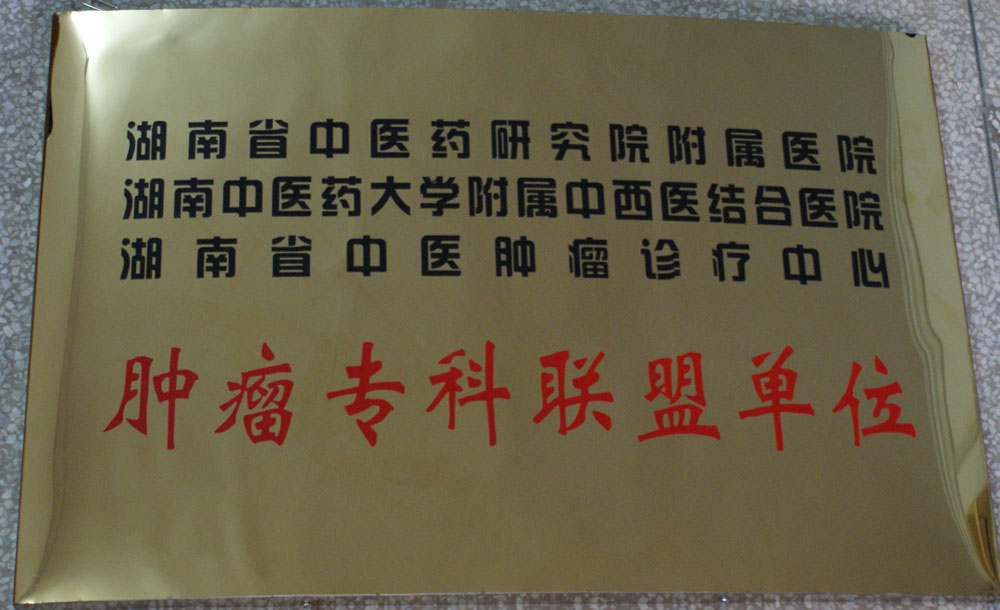 湖南省中医药研究院附属医院
湖南中医药大学附属中西医结合医院
湖南省中医肿瘤诊疗中心
肿瘤专科联盟单位